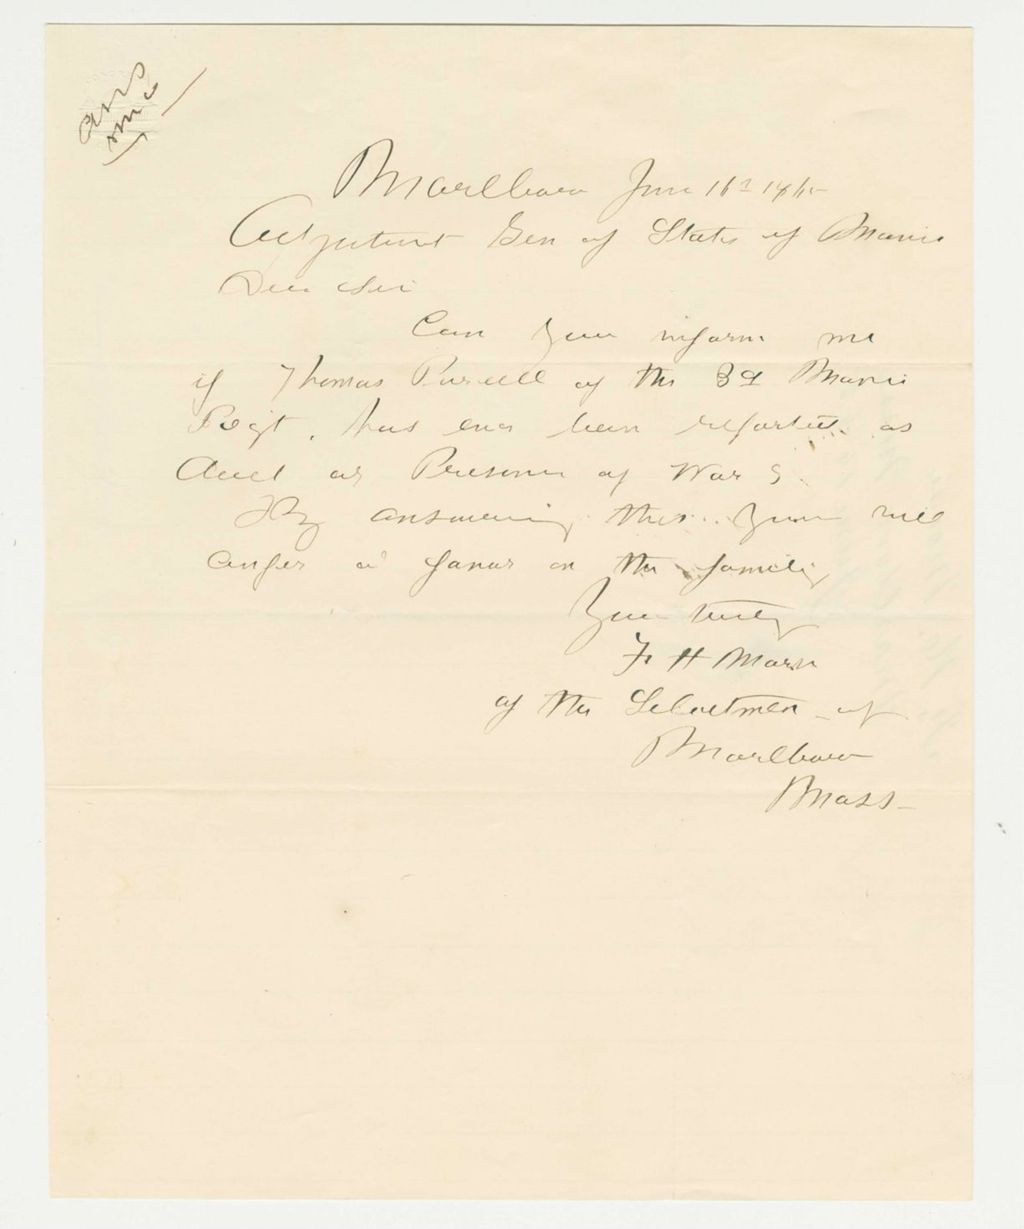 Ans
Marlboro June 16th 1865
Adjutant Gen of State of Maine
Dear Sir
Can you inform me
if Thomas Purcell of the 3d Maine
Regt. has ever been reported as
dead or Prisoner of War
By answering this you will
confer a favor on the family
Yours truly
F H Morse
of the Selectmen of
Marlboro
Mass